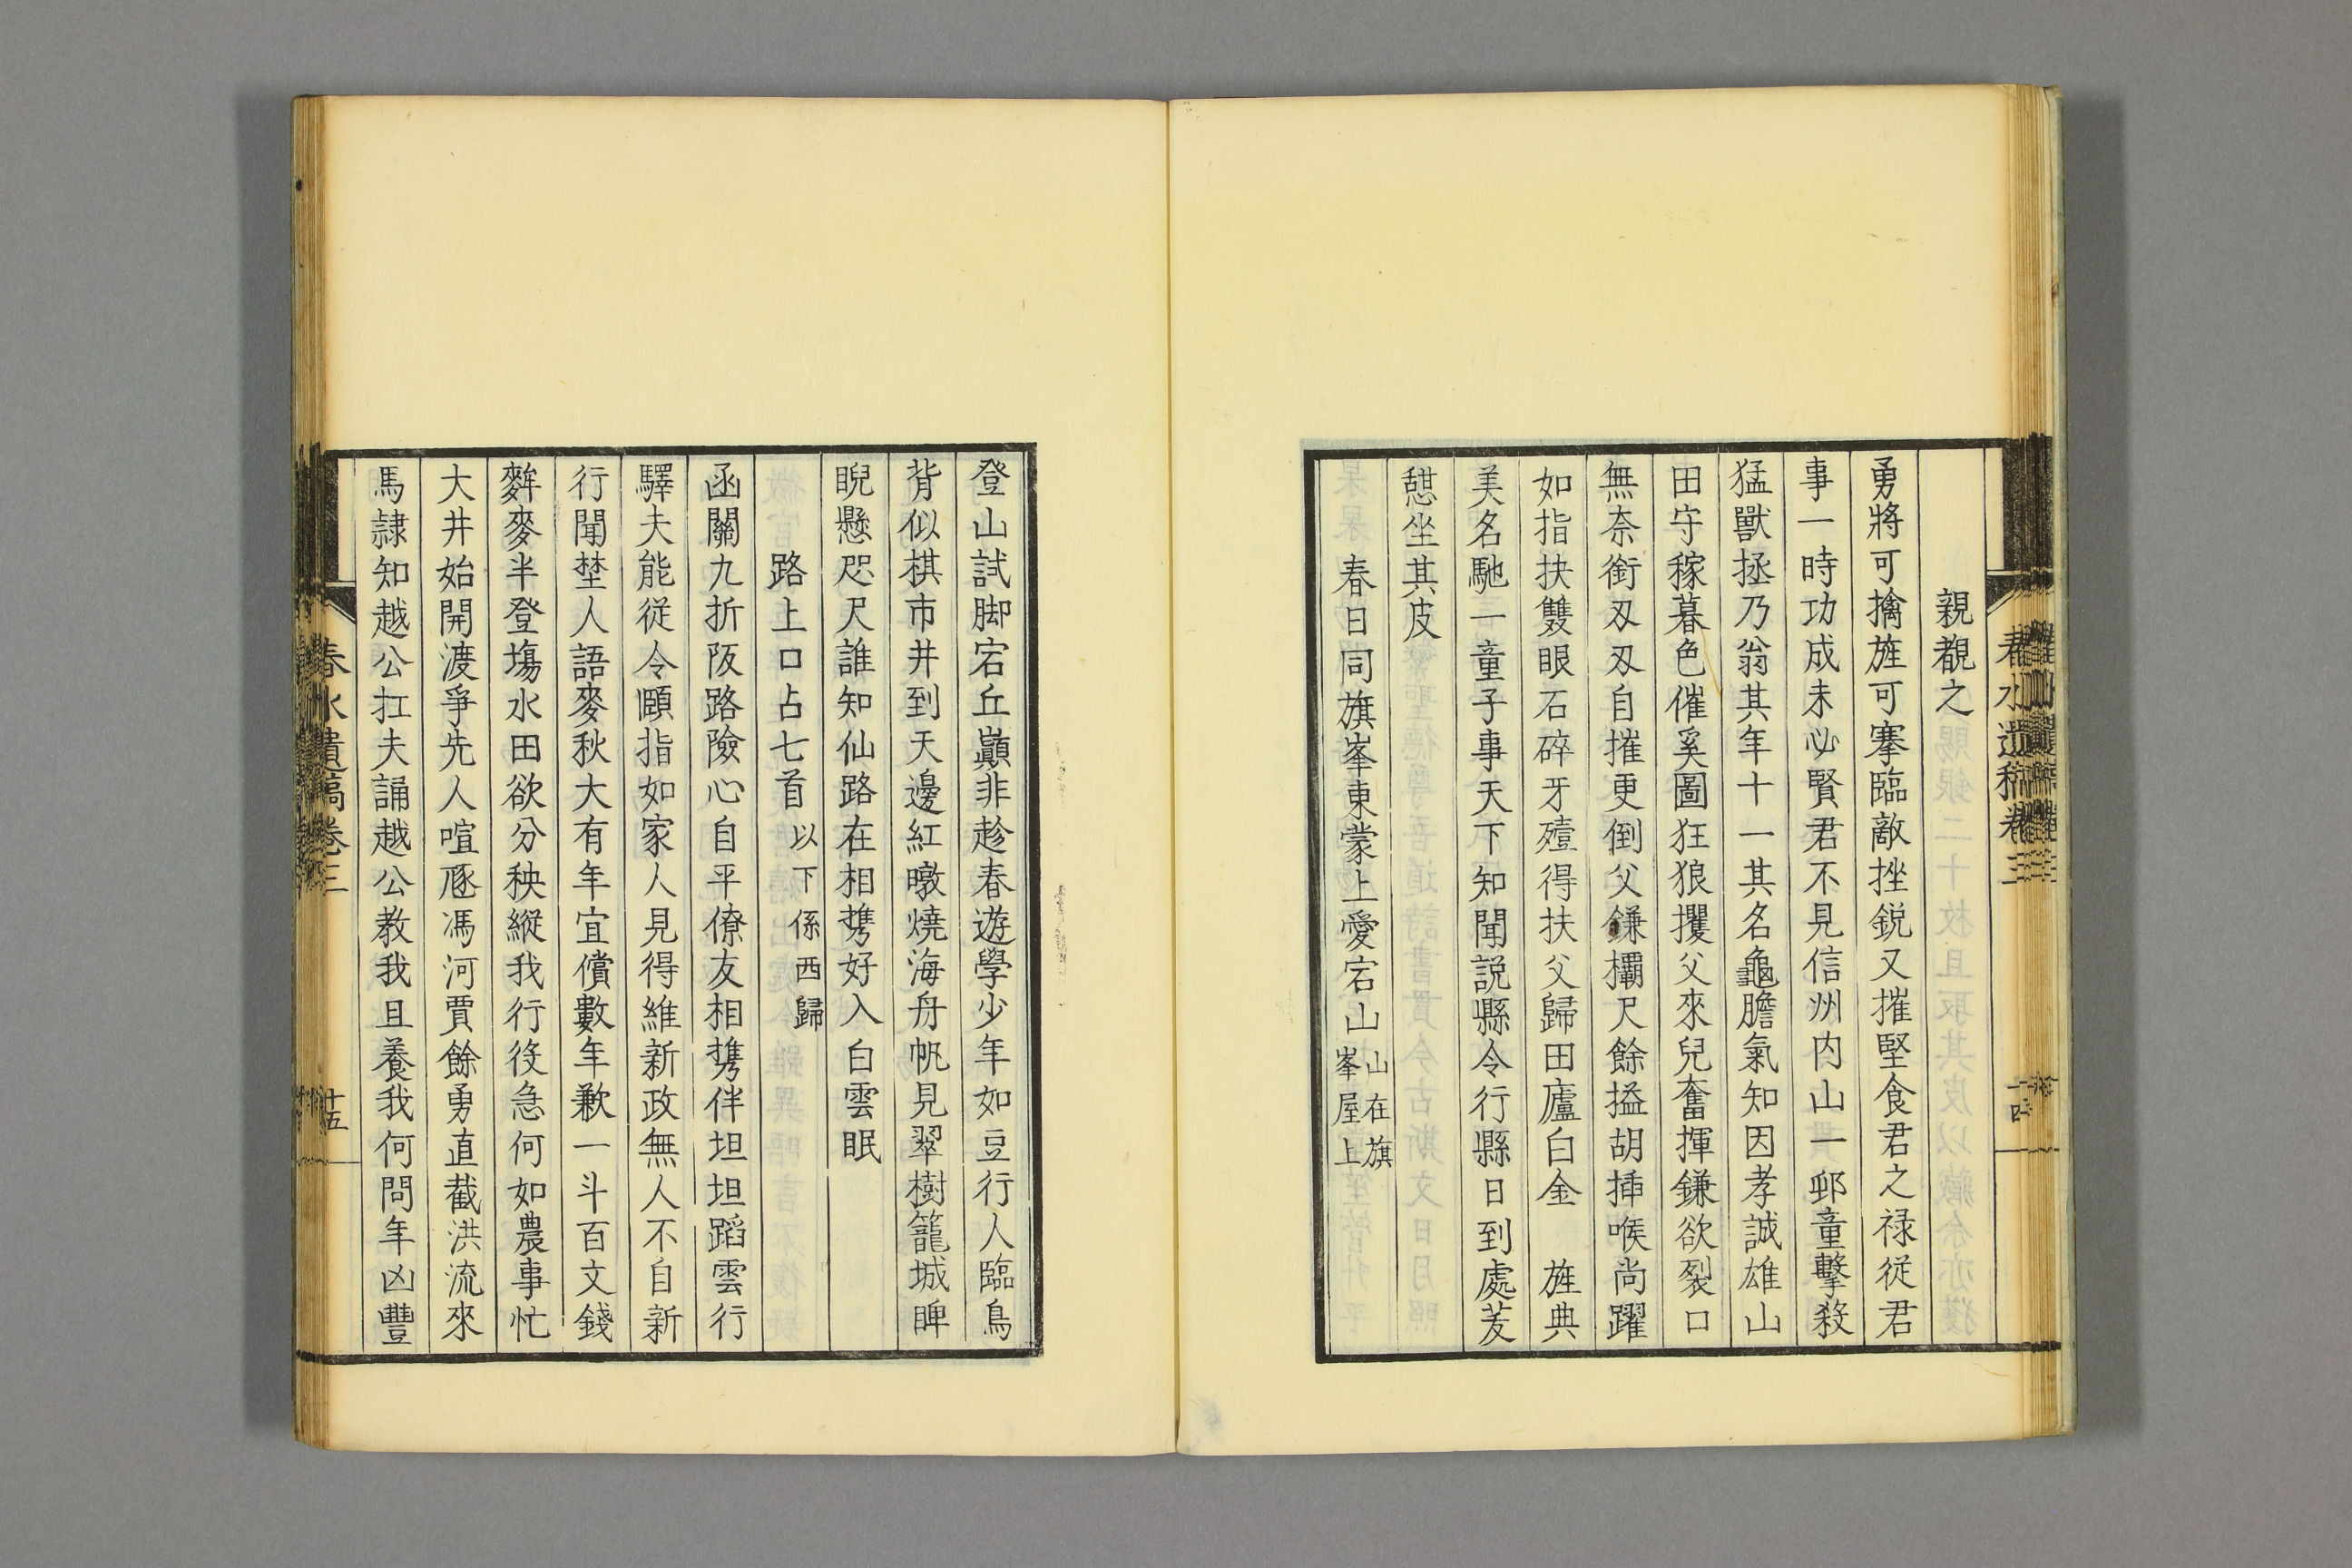 親覩之
勇將可擒旌可搴臨敵挫鋭又摧堅食君之禄従君
事一時功成未必賢君不見信州内山一邨童擊殺
猛獸拯乃翁其年十一其名龜膽氣知因孝誠雄山
田守稼暮色催奚圖狂狼攫父來兒奮揮鎌欲裂口
無奈銜刃刃自摧更倒父鎌欛尺餘搤胡揷喉尚躍
如指抉雙眼石碎牙殪得扶父歸田廬白金　旌典
美名馳一童子事天下知聞説縣令行縣日到處茇
憇坐其皮
春日同旗峯東蒙上愛宕山山在旗峯屋上
春水遺稿卷三
十四
登山試脚宕丘巓非趁春遊學少年如豆行人臨鳥
背似棋市井到天邊紅暾燒海舟帆見翠樹籠城睥
睨懸咫尺誰知仙路在相携好入白雲眠
路上口占七首以下係西歸
函關九折阪路險心自平僚友相携伴坦坦蹈雲行
驛夫能従令頤指如家人見得維新政無人不自新
行聞埜人語麥秋大有年宜償數年歉一斗百文錢
麰麥半登塲水田欲分秧縱我行役急何如農事忙
大井始開渡爭先人喧豗馮河賈餘勇直截洪流來
馬隷知越公扛夫誦越公教我且養我何問年凶豐
春水遺稿卷三
十五